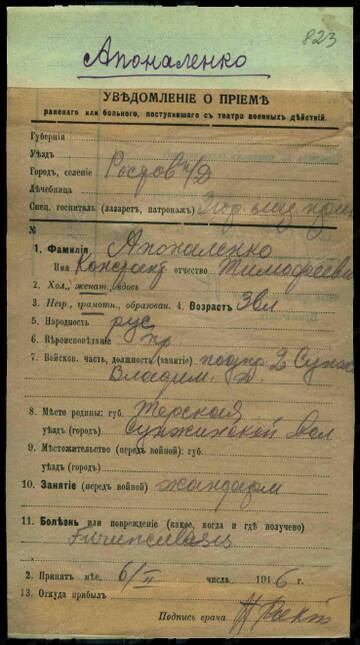 823
Апоналенко
УВѢДОМЛЕНІЕ О ПРІЕМѢ
раненаго или больного, поступившаго съ театра военныхъ дѣйствій.
Губернія
Уѣздъ
Городъ, селеніе Ростов н/Д
Лѣчебница
Спец. госпиталь (лазаретъ, патронажъ)
№
1. Фамилія Апоналенко
Имя отчество Тимофеевич
2. Хол., женат., вдовъ
3. Негр., грамотн., образован. 4. Возрастъ 38 л
5. Народность рус
6. Вѣроисповѣданіе пр
7. Войсков. часть, должность (занятіе) 2
Владим.
8. Мѣсто родины: губ. Терская
уѣздъ (городъ) Сунженской
9. Мѣстожительство (передъ войной): губ.
уѣздъ (городъ)
10. Занятіе (передъ войной) жандарм
11. Болѣзнь или поврежденіе (какое, когда и гдѣ получено)
Furunculosis
2. Принятъ мѣс. 6/II числа. 1916 г.
13. Откуда прибылъ
Подпись врача